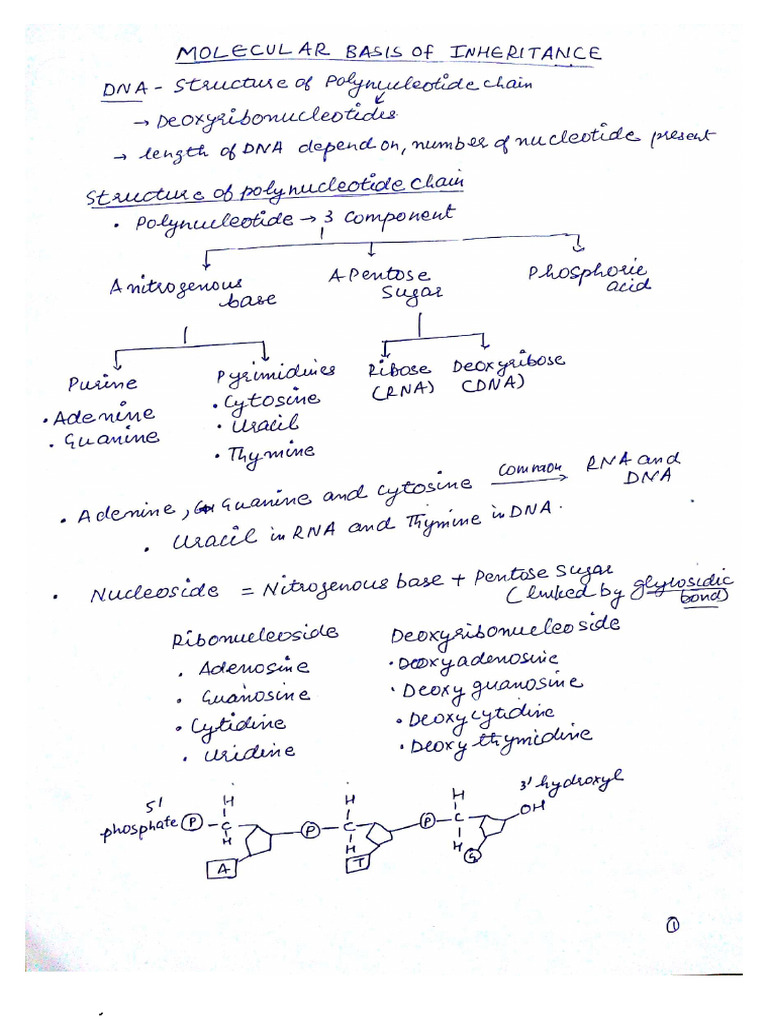 MOLECULAR BASIS of INHERITANCE
DNA - Structure of Polynucleotide chain
→ Deoxyribonucleotides
→ length of DNA depend on, number of nucleotide present
Structure of polynucleotide chain
• Polynucleotide → 3 component
A nitrogenous base
A Pentose Sugar
Phosphoric acid
Purine
• Adenine
• Guanine
Pyrimidines
• Cytosine
• Uracil
• Thymine
Ribose (RNA)
Deoxyribose (DNA)
• Adenine, Guanine and cytosine common → RNA and DNA
• Uracil in RNA and Thymine in DNA.
• Nucleoside = Nitrogenous base + Pentose Sugar
(linked by glycosidic bond)
Ribonucleoside
• Adenosine
• Guanosine
• Cytidine
• Uridine
Deoxyribonucleoside
• Deoxyadenosine
• Deoxy guanosine
• Deoxycytidine
• Deoxy thymidine
5' phosphate P - C H H A
P - C H H T
P - C H H G
3' hydroxyl
OH
1